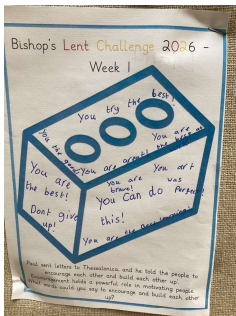 Bishop's Lent Challenge 2026 -
Week 1
You try the best!
You the good
You are great!
You are the best
You are
the best!
You are
brave!
You art
was
Dont give
up!
You Can do
this!
You are the
Paul sent letters to Thessalonica, and he told the people to
encourage each other and build each other up.
Encouragement holds a powerful role in motivating people.
What words could you say to encourage and build each other
up?